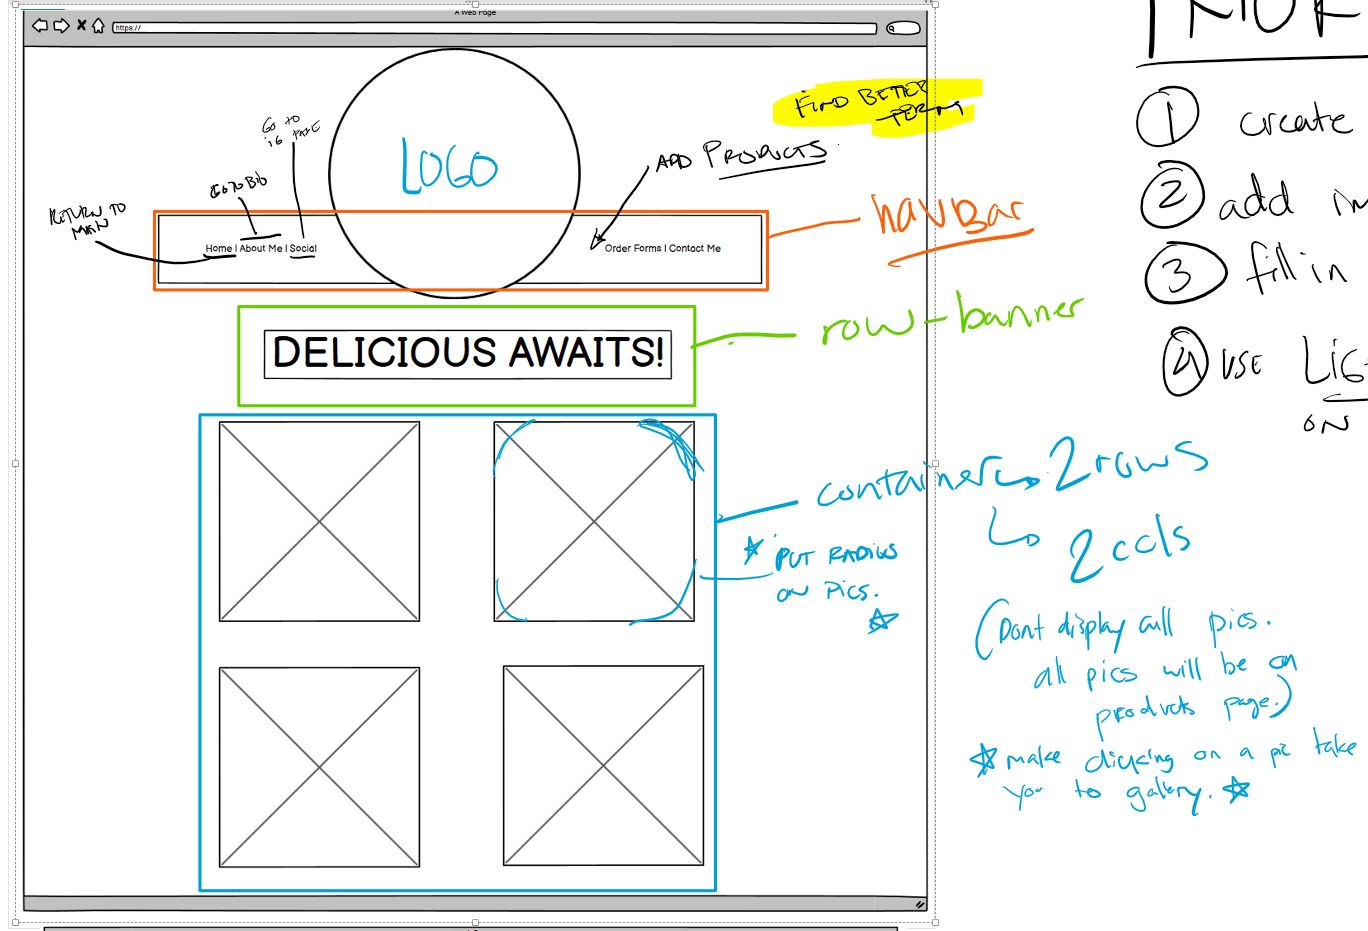 A Web Page
https://
FIND BETTER
TERM
GO TO
IG PAGE
LOGO
ADD PRODUCTS
GO TO BIO
RETURN TO
MAIN
navBar
Home | About Me | Social
Order Forms | Contact Me
row-banner
DELICIOUS AWAITS!
container → 2 rows
↳ 2 cols
★ PUT RADIUS
ON PICS.
★
(Dont display all pics.
all pics will be on
products page.)
★ make clicking on a pic take
you to gallery. ★
1 create
2 add im
3 fill in
4 USE LIG
ON